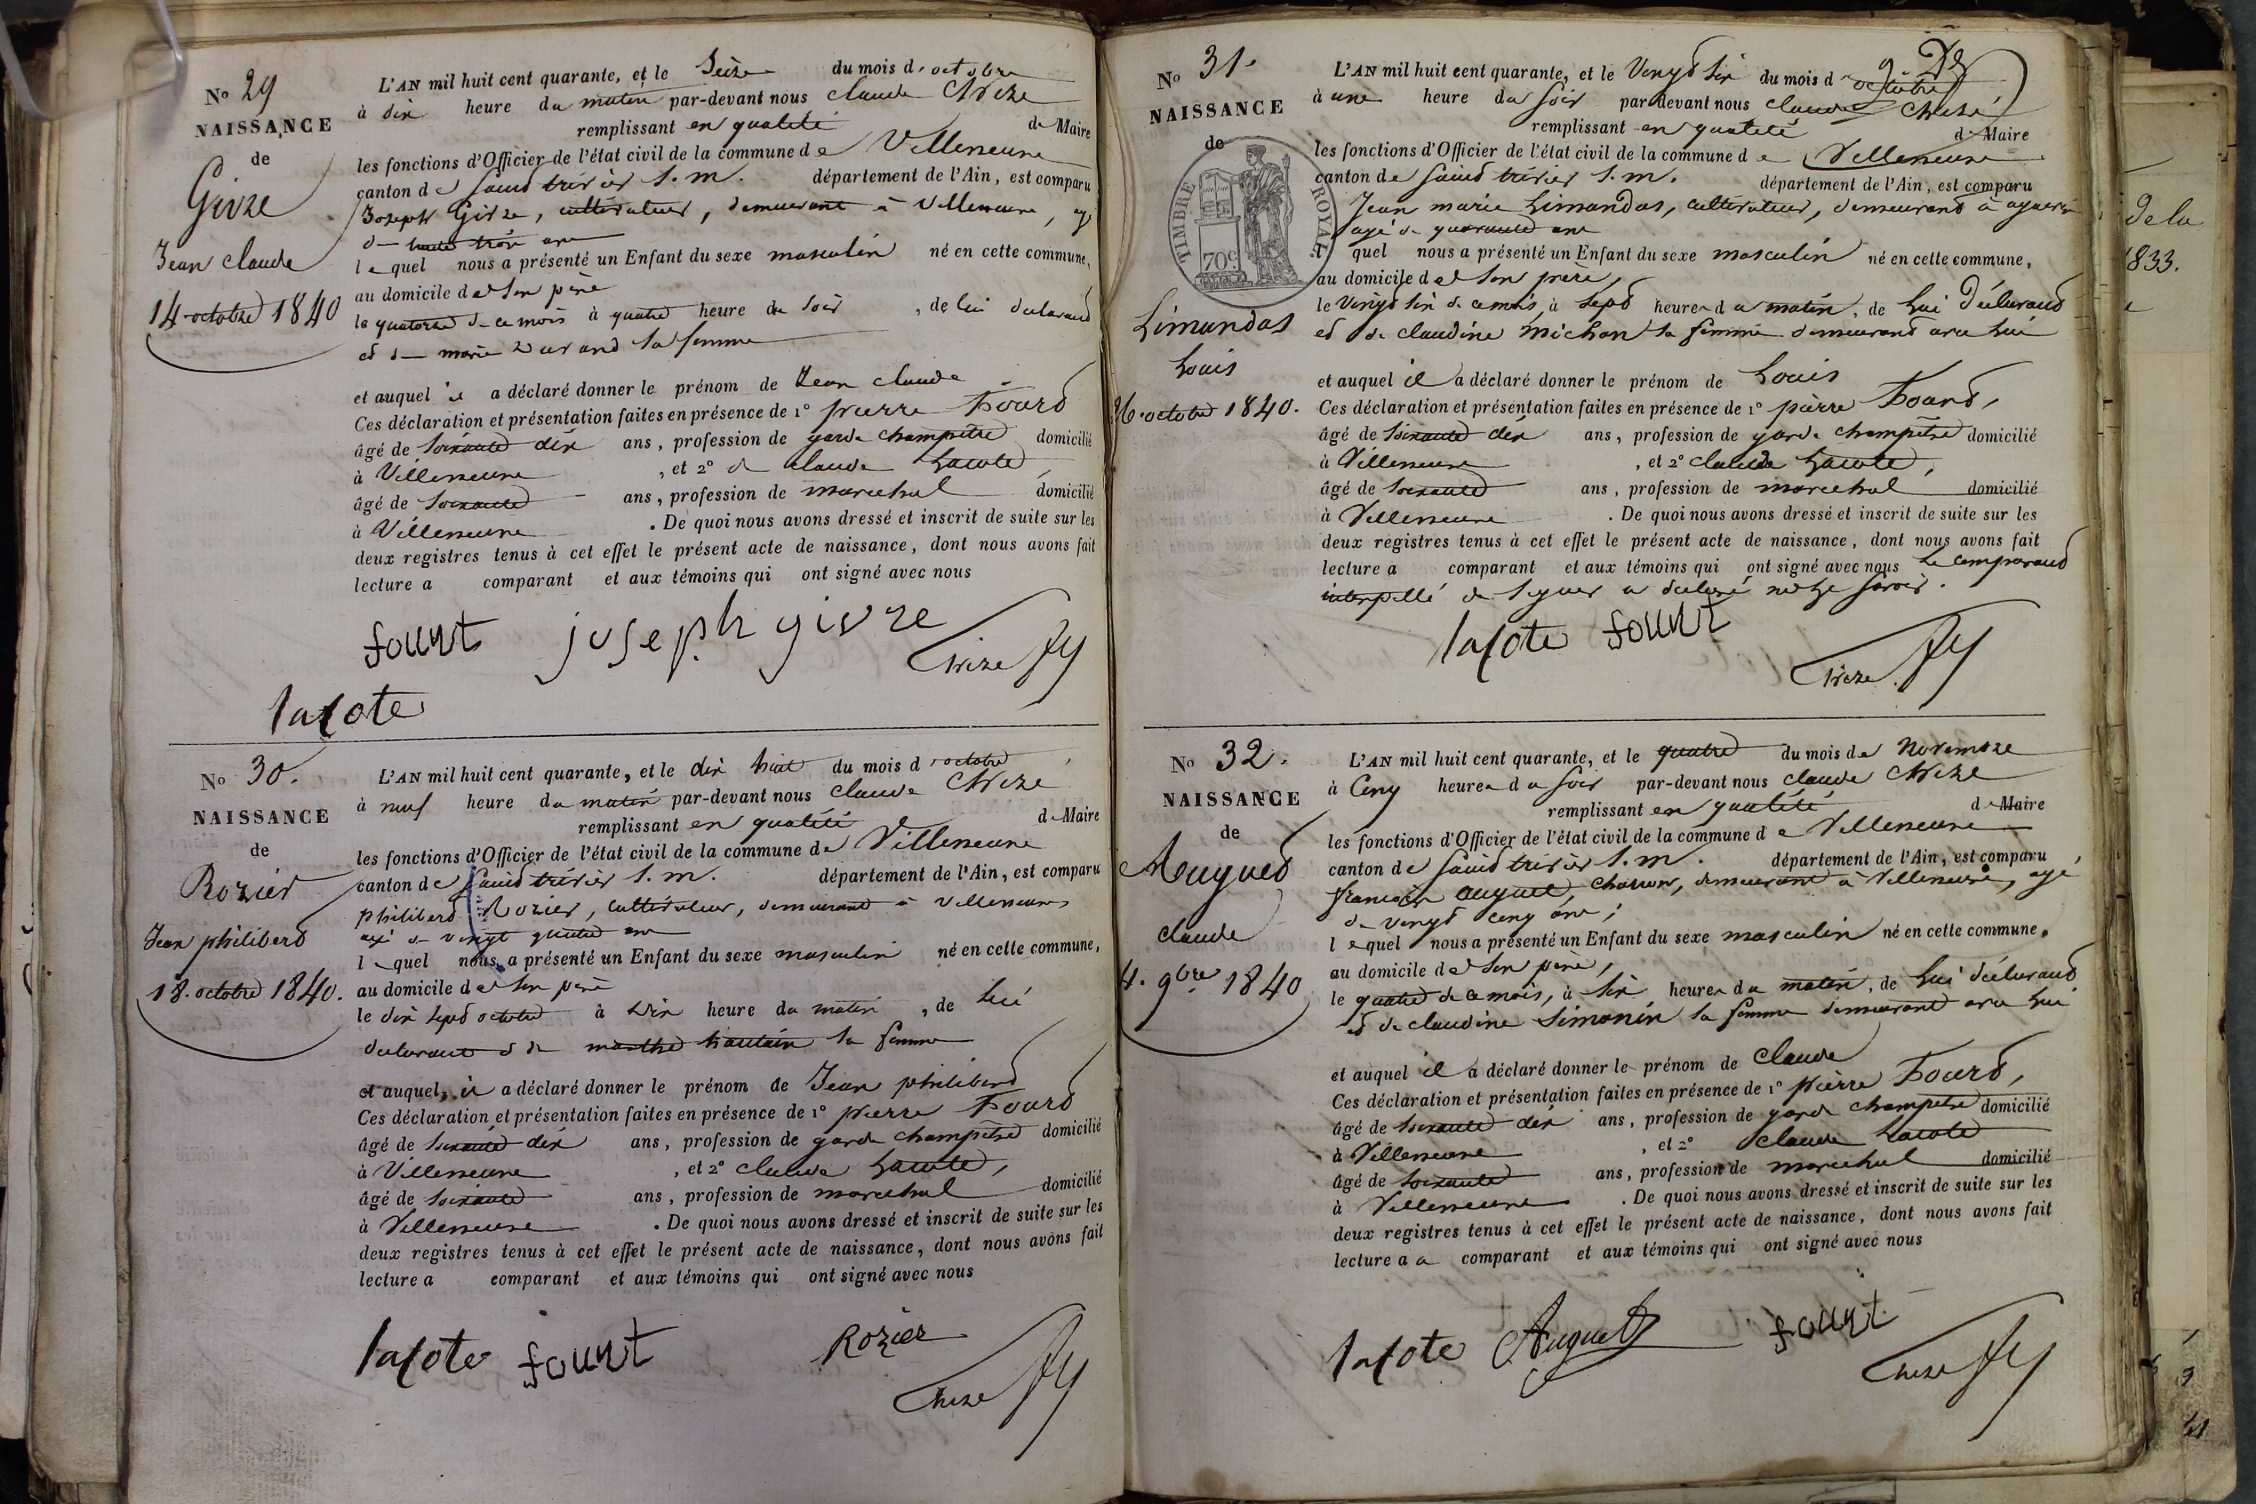 No 29
NAISSANCE
de
Givre
Jean claude
14 octobre 1840
L'AN mil huit cent quarante, et le Seize du mois d'octobre
à dix heure du matin par-devant nous claude Chize
remplissant en qualité de Maire
les fonctions d'Officier de l'état civil de la commune de Villeneuve
canton de Saint trivier S. m. département de l'Ain, est comparu
Joseph Givre, cultivateur, demeurant à Villeneuve,
de trente trois ans
lequel nous a présenté un Enfant du sexe masculin né en cette commune,
au domicile de Son père
le quatorze de ce mois à quatre heure du Soir, de lui déclarant
et de marie Durand Sa femme
et auquel il a déclaré donner le prénom de Jean claude
Ces déclaration et présentation faites en présence de 1° pierre Fourt
âgé de Soixante dix ans, profession de garde champêtre domicilié
à Villeneuve, et 2° de claude Lacote,
âgé de Soixante ans, profession de marechal domicilié
à Villeneuve. De quoi nous avons dressé et inscrit de suite sur les
deux registres tenus à cet effet le présent acte de naissance, dont nous avons fait
lecture a comparant et aux témoins qui ont signé avec nous
fourt joseph givre Chize
lacote
No 30.
NAISSANCE
de
Rozier
Jean philibert
18. octobre 1840.
L'AN mil huit cent quarante, et le dix huit du mois d'octobre
à neuf heure du matin par-devant nous claude Chize
remplissant en qualité de Maire
les fonctions d'Officier de l'état civil de la commune de Villeneuve
canton de Saint trivier S. m. département de l'Ain, est comparu
philibert Rozier, cultivateur, demeurant à Villeneuve
agé de vingt quatre ans
lequel nous a présenté un Enfant du sexe masculin né en cette commune,
au domicile de Son père
le dix Sept octobre à Dix heure du matin, de lui
déclarant et de marthe Sa femme
et auquel, il a déclaré donner le prénom de Jean philibert
Ces déclaration et présentation faites en présence de 1° pierre Fourt
âgé de Soixante dix ans, profession de garde champêtre domicilié
à Villeneuve, et 2° claude Lacote,
âgé de Soixante ans, profession de marechal domicilié
à Villeneuve. De quoi nous avons dressé et inscrit de suite sur les
deux registres tenus à cet effet le présent acte de naissance, dont nous avons fait
lecture a comparant et aux témoins qui ont signé avec nous
lacote fourt Rozier
Chize
No 31.
NAISSANCE
de
TIMBRE ROYAL
70c
Limandas
Louis
26. octobre 1840.
L'AN mil huit cent quarante, et le Vingt Six du mois d'octobre
à une heure du Soir par-devant nous claude Chize
remplissant en qualité de Maire
les fonctions d'Officier de l'état civil de la commune de Villeneuve
canton de Saint trivier S. m. département de l'Ain, est comparu
Jean marie Limandas, cultivateur, demeurant à
agé de quarante ans
lequel nous a présenté un Enfant du sexe masculin né en cette commune,
au domicile de Son père,
le Vingt Six de ce mois, à Sept heure du matin, de Lui Déclarant
et de claudine Michon Sa femme demeurant avec Lui
et auquel il a déclaré donner le prénom de Louis
Ces déclaration et présentation faites en présence de 1° pierre Fourt,
âgé de Soixante dix ans, profession de garde champêtre domicilié
à Villeneuve, et 2° claude Lacote,
âgé de Soixante ans, profession de marechal domicilié
à Villeneuve. De quoi nous avons dressé et inscrit de suite sur les
deux registres tenus à cet effet le présent acte de naissance, dont nous avons fait
lecture a comparant et aux témoins qui ont signé avec nous Le comparant
interpellé de Signer a déclaré ne le Savoir.
lacote fourt
Chize
No 32.
NAISSANCE
de
Auguet
claude
4. 9bre 1840
L'AN mil huit cent quarante, et le quatre du mois de Novembre
à Cinq heures du Soir par-devant nous claude Chize
remplissant en qualité de Maire
les fonctions d'Officier de l'état civil de la commune de Villeneuve
canton de Saint trivier S. m. département de l'Ain, est comparu
françois auguet, charron, demeurant à Villeneuve, agé
de vingt cinq ans;
lequel nous a présenté un Enfant du sexe masculin né en cette commune,
au domicile de Son père,
le quatre de ce mois, à Six heures du matin, de Lui déclarant
et de claudine Simonin Sa femme demeurant avec Lui
et auquel il a déclaré donner le prénom de Claude
Ces déclaration et présentation faites en présence de 1° pierre Fourt,
âgé de Soixante dix ans, profession de garde champêtre domicilié
à Villeneuve, et 2° claude Lacote
âgé de Soixante ans, profession de marechal domicilié
à Villeneuve. De quoi nous avons dressé et inscrit de suite sur les
deux registres tenus à cet effet le présent acte de naissance, dont nous avons fait
lecture a a comparant et aux témoins qui ont signé avec nous
lacote Auguet fourt
Chize
De la
1833.